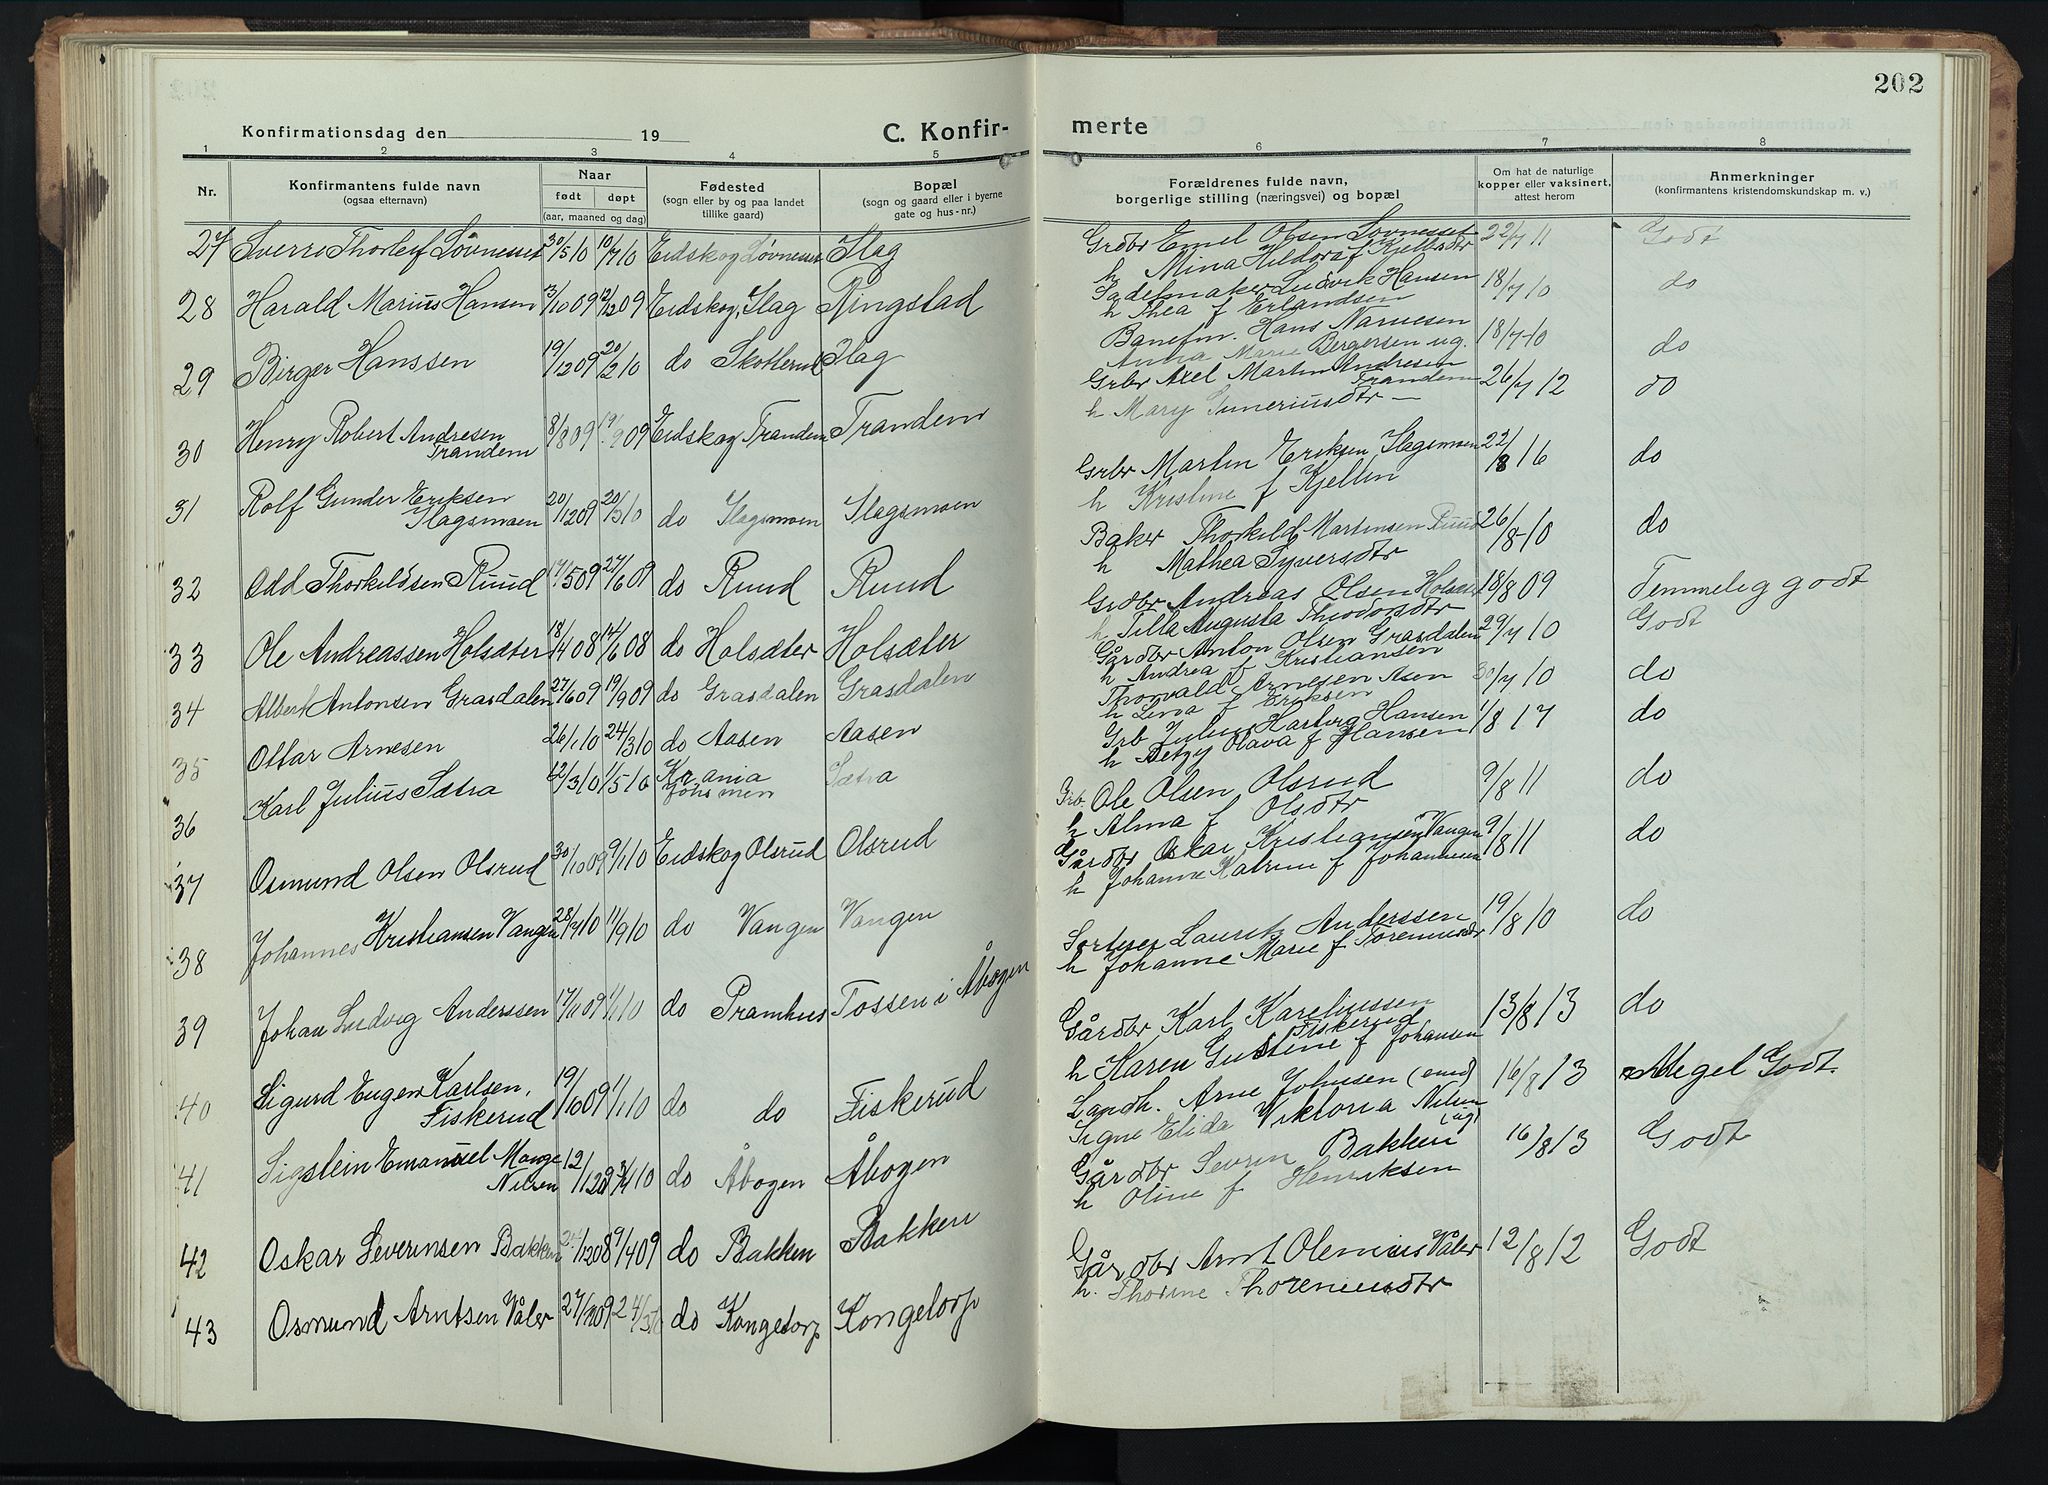 202
Konfirmationsdag den 19 C. Konfir-
merte
1 2 3 4 5
6 7 8
Nr. Konfirmantens fulde navn (ogsaa efternavn) Naar født døpt (aar, maaned og dag) Fødested (sogn eller by og paa landet tillike gaard) Bopæl (sogn og gaard eller i byerne gate og hus-nr.)
Forældrenes fulde navn, borgerlige stilling (næringsvei) og bopæl Om hat de naturlige kopper eller vaksinert, attest herom Anmerkninger (konfirmantens kristendomskundskap m. v.)
27 Sverre Thorleif Løvnesset 30/5 10 10/7 10 Eidskog Løvnesset Slag
Grdbr Emel Olsen Løvnesset 22/7 11 Godt
h Mina Hildora f Kjelbsdtr
28 Harald Marius Hansen 3/10 09 12/12 09 Eidskog, Slag Ringstad
Sadelmaker Ludvik Hansen 18/7 10 do
h Thea f Erlandsen
29 Birger Hanssen 19/12 09 20/2 10 do Skotterud Slag
Banefm. Hans Narvesen 18/7 10 do
Anna Marie Bergersen ug.
30 Henry Robert Andresen 8/8 09 19/9 09 Eidskog Trandem Trandem
Trandem
Grbr Axel Martin Andresen 26/7 12 do
Trandem
h Mary Simeriusdtr —
31 Rolf Gunder Eriksen 20/12 09 20/3 10 do Slagsmoen Slagsmoen
Slagsmoen
Grbr Martin Eriksen Slagsmoen 22/8 16 do
h Kristine f Kjellin
32 Odd Thorkildsen Ruud 17/5 09 27/6 09 do Ruud Ruud
Baker Thorkild Martinsen Ruud 26/8 10 do
h Mathea Syversdtr
33 Ole Andreassen Holsæter 18/4 08 14/6 08 do Holsæter Holsæter
Grdbr Andreas Olsen Holsæter 18/8 09 Temmelig godt
h Tilla Augusta Theodorsdtr
34 Albert Antonsen Grasdalen 27/6 09 19/9 09 do Grasdalen Grasdalen
Gårdbr Anton Olsen Grasdalen 29/7 10 Godt
h Andrea f Kristiansen
35 Ottar Arnesen 26/1 10 24/3 10 do Aasen Aasen
Thorvald Arnesen Aasen 30/7 10 do
h Lina f Eriksen
36 Karl Julius Sætra 12/3 10 1/5 10 Kr.ania Sætra
Grb Julius Hartvig Hansen 1/8 17 do
h Betzy Olava f Hansen
37 Osmund Olsen Olsrud 30/10 09 9/1 10 Eidskog Olsrud Olsrud
Grb. Ole Olsen Olsrud 9/8 11 do
h Alma f Olsdtr
38 Johannes Kristiansen Vangen 28/7 10 11/9 10 do Vangen Vangen
Gårdbr Oskar Kristiansen Vangen 9/8 11 do
h Johanne Katrine f Johannesen
39 Johan Ludvig Anderssen 17/11 09 1/1 10 do Pramhus Tossen i Åbogen
Sorterer Lauritz Anderssen 19/8 10 do
h Johanne Marie f Toreniusdtr
40 Sigurd Eugen Karlsen, 19/10 09 1/1 10 do do Fiskerud
Fiskerud
Gårdbr Karl Kareliussen 13/8 13 do
Fiskerud
h Karen Gustine f Johansen
41 Sigstein Emanuel Mange 12/12 09 3/4 10 do Åbogen Åbogen
Nilsen
Landh. Arne Johnsen (end) 16/8 13 Meget Godt
Signe Elida Viktoria Nilsen
(ug)
42 Oskar Severinsen Bakken 24/12 08 9/4 09 do Bakken Bakken
Gårdbr Severin Bakken 16/8 13 Godt
h Oline f Henriksen
43 Osmund Arntsen Våler 27/12 09 24/3 10 do Kongetorp Kongetorp
Gårdbr Arnt Olenius Våler 12/8 12 Godt
h. Thorine Thoreniusdtr